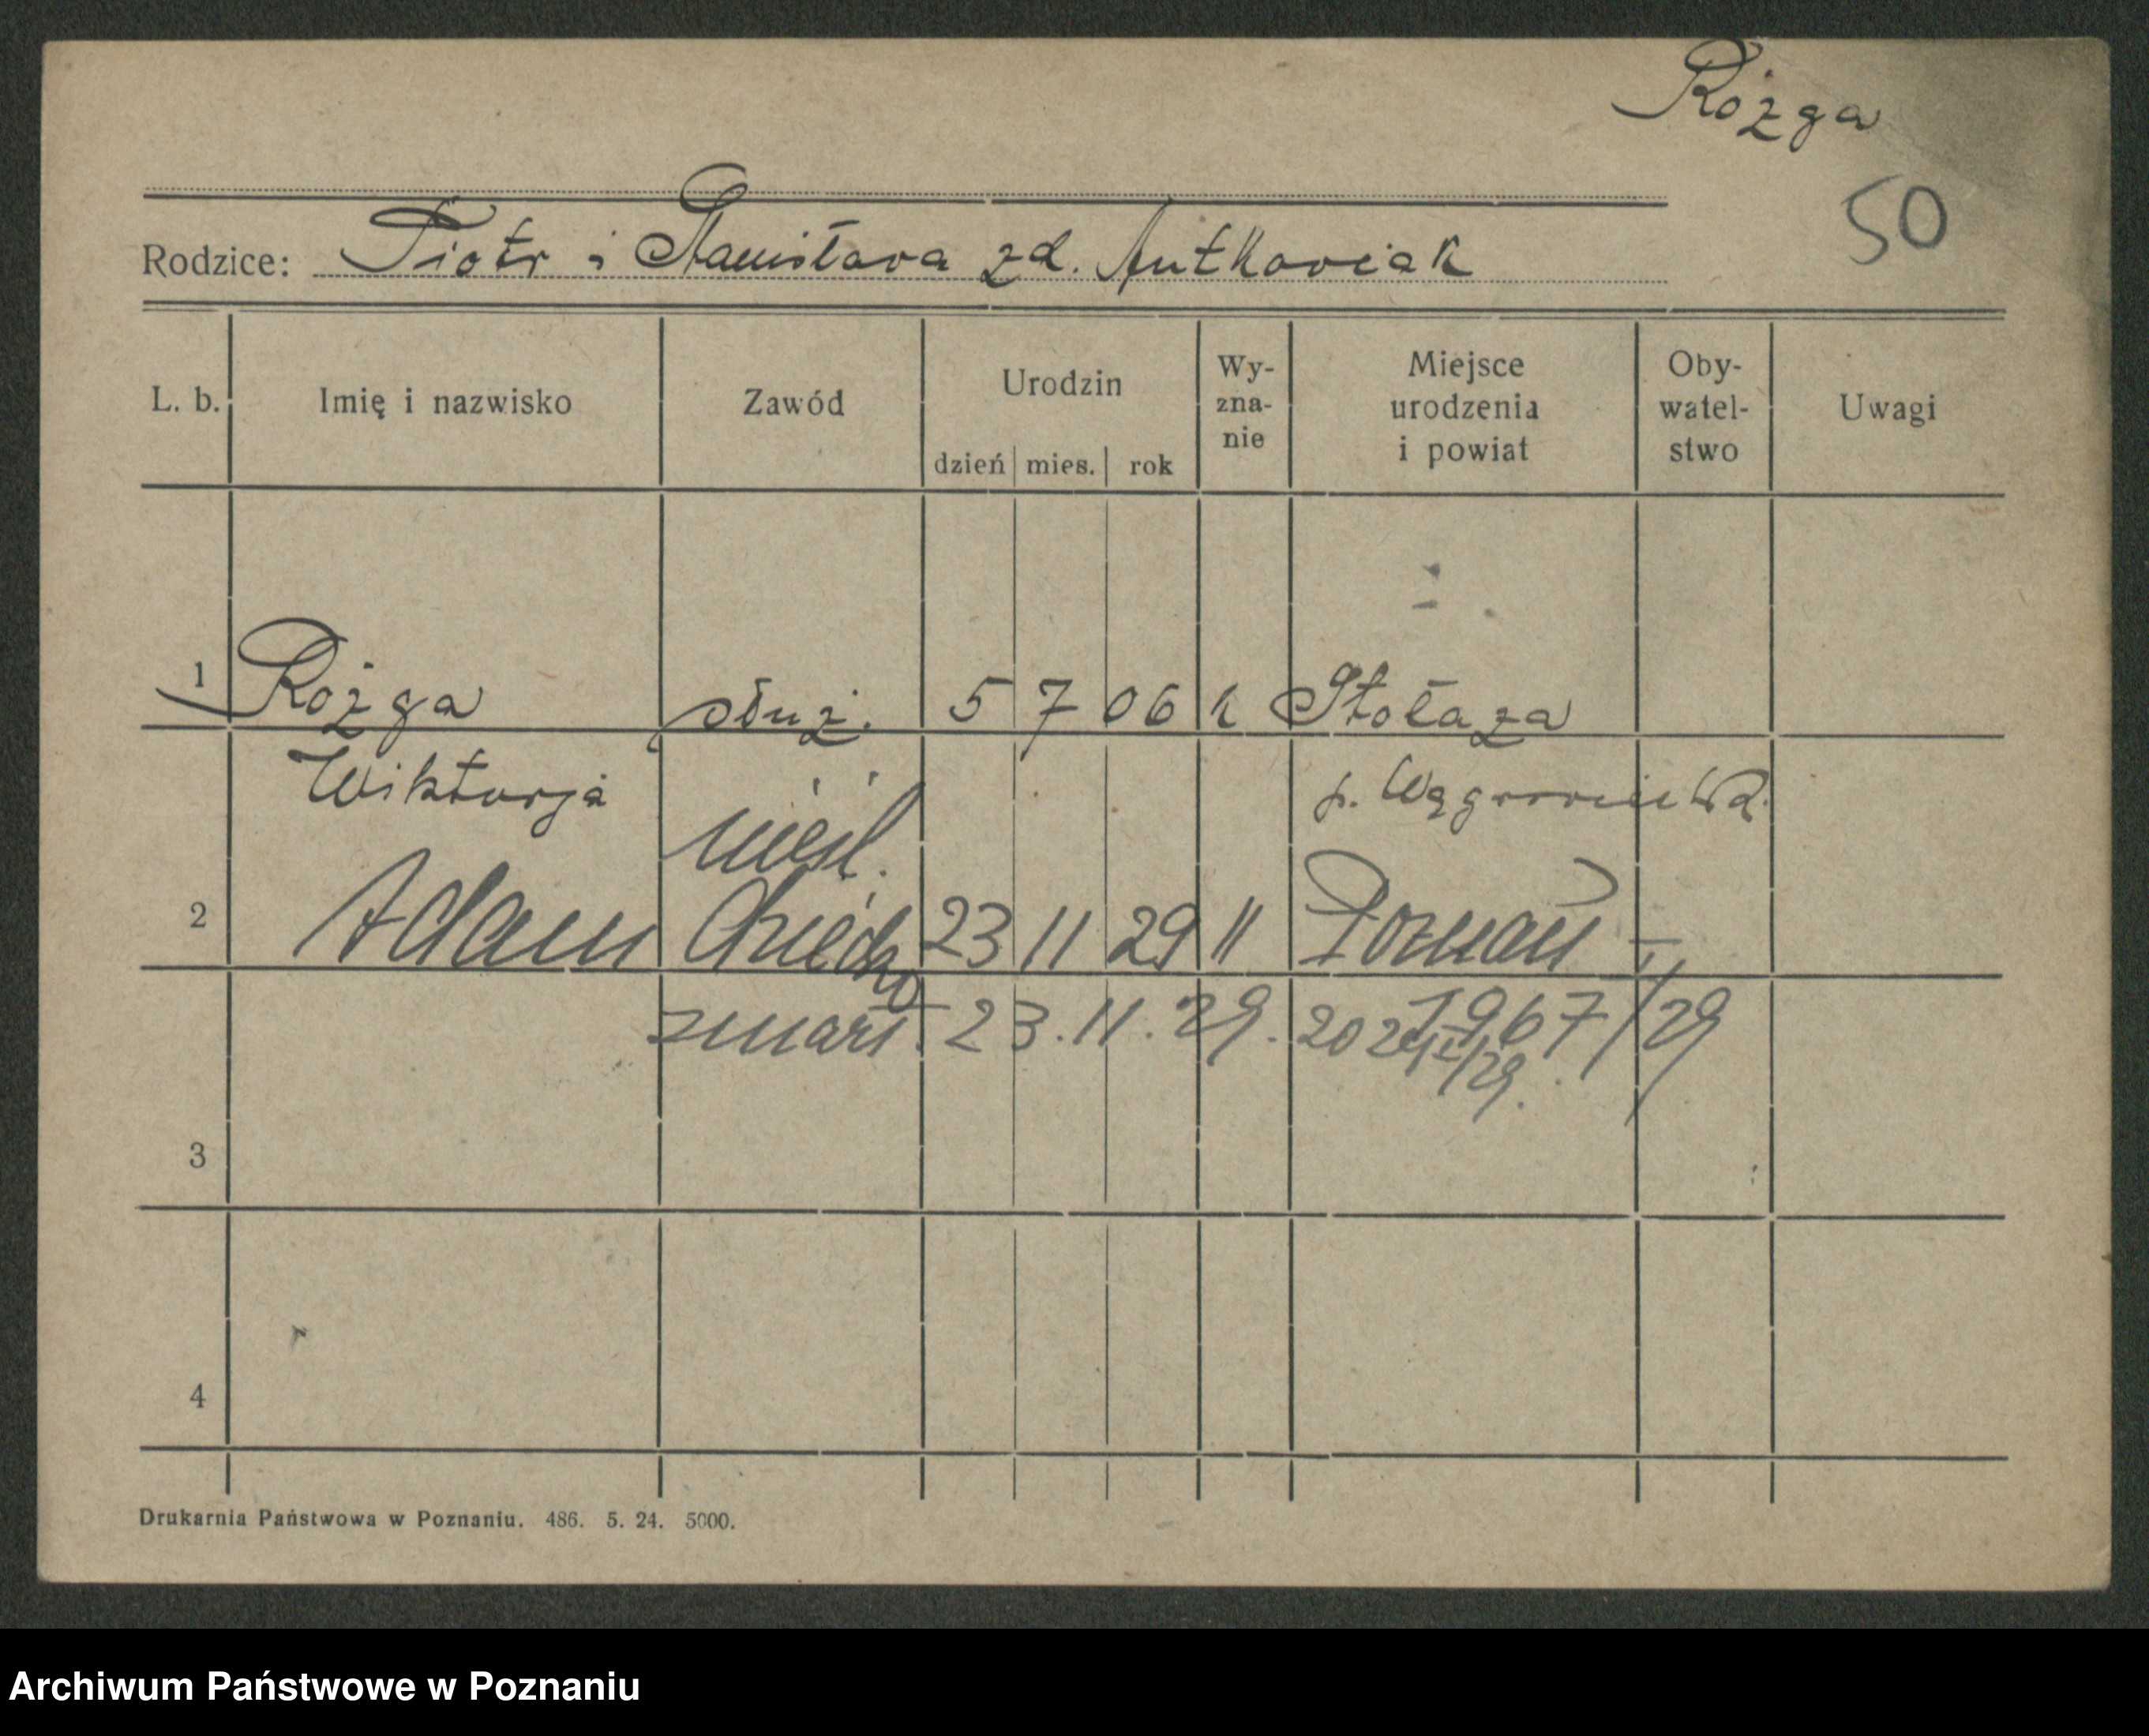 Rożga
50
Rodzice: Piotr i Stanisława zd. Antkowiak
L. b. Imię i nazwisko Zawód Urodzin dzień mies. rok Wy-zna-nie Miejsce urodzenia i powiat Oby-watel-stwo Uwagi
1 Rożga służ. 5 7 06 k
Wiktorja p. Wągrowiec
nieśl.
2 Adam dziecko 23 11 29 " Poznań
zmarł. 23.11.29. 1967/29
3
4
Drukarnia Państwowa w Poznaniu. 486. 5. 24. 5000.
Archiwum Państwowe w Poznaniu